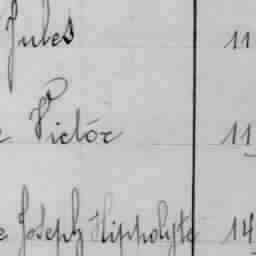 Jules 11
e Victor 11
e Joseph Hippolyte 14